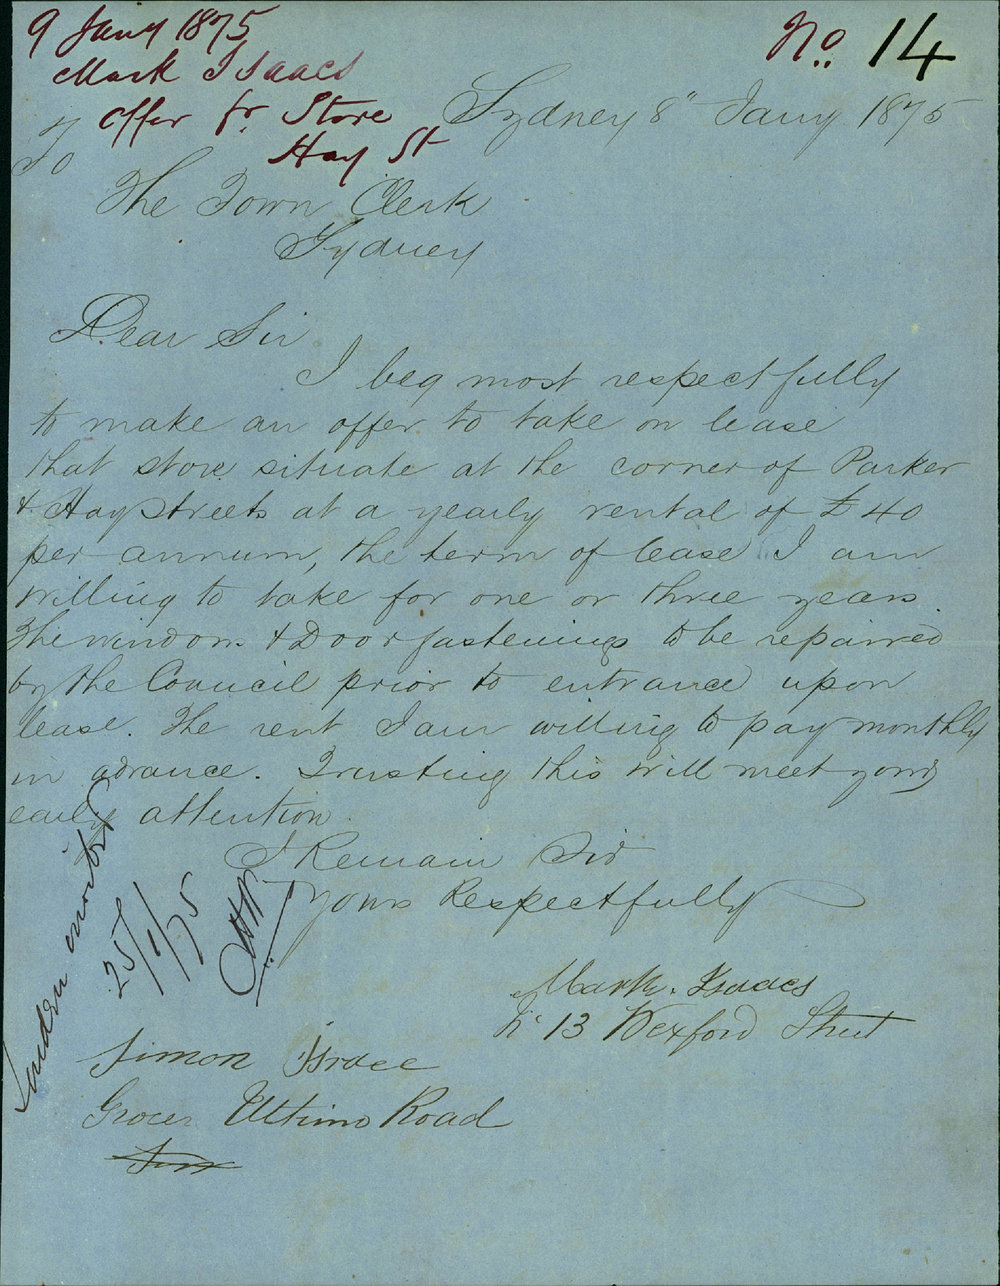 9 Jany 1875
Mark Isaacs
offer fr. Store
Hay St
No. 14
Sydney 8" Jany 1875
To
The Town Clerk
Sydney
Dear Sir
I beg most respectfully
to make an offer to take on lease
that store situate at the corner of Parker
& Hay Streets at a yearly rental of £40
per annum, the term of lease I am
willing to take for one or three years.
The windows & Door fastenings to be repaired
by the Council prior to entrance upon
lease. The rent I am willing to pay monthly
in advance. Trusting this will meet your
early attention
I Remain Sir
Yours Respectfully
Mark. Isaacs
No 13 Wexford Street
25/1/75
Simon
Grocer Ultimo Road